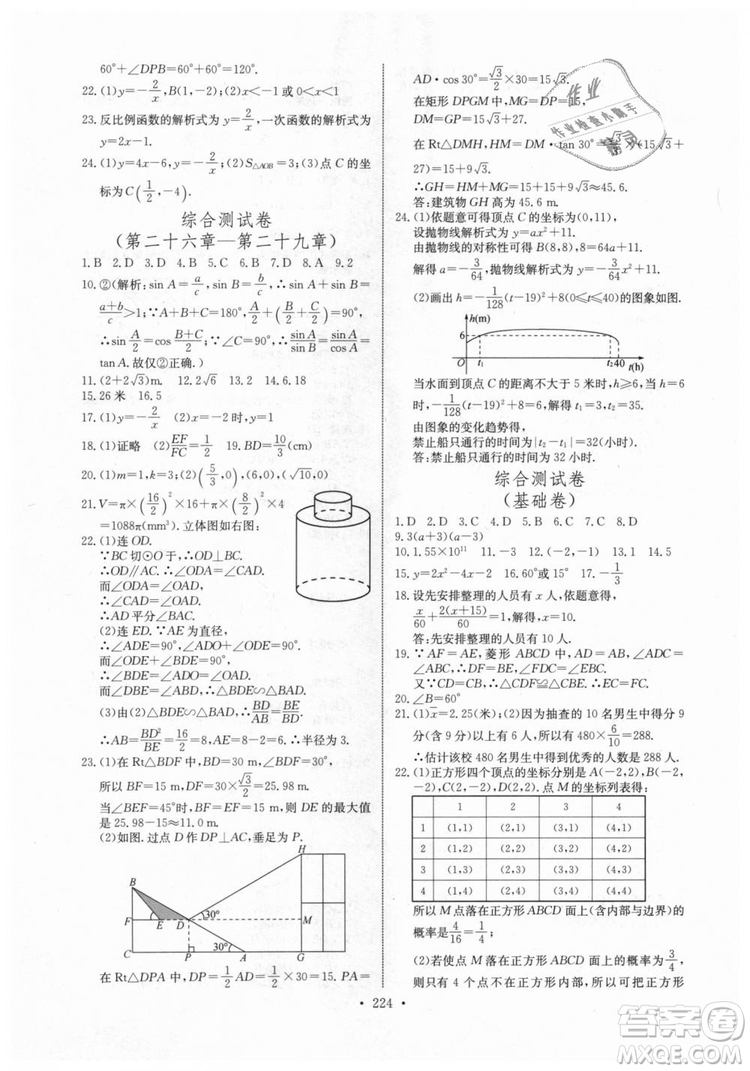 60°+∠DPB=60°+60°=120°.
22.(1)y=-2/x,B(1,-2);(2)x<-1或0<x<1
23.反比例函数的解析式为y=2/x,一次函数的解析式为
y=2x.
24.(1)y=4x-6,y=-2/x;(2)S△AOB=3;(3)点C的坐
标为C(1/2,-4).
综合测试卷
(第二十六章—第二十九章)
1.B 2.D 3.D 4.A 5.D 6.D 7.A 8.A 9.2
10.②(解析:sin A=a/c,sin B=b/c,∴sin A+sin B=
(a+b)/c>1;②∵A+B+C=180°,A/2+(B+C)/2=90°,
∴sin A/2=cos (B+C)/2,故②正确.③sin A/sin B=sin A/cos A=
tan A.故仅②正确.)
11.(2+2√3)m. 12.2√6 13.2√5 14.6.18
15.26米 16.5
17.(1)y=-2/x (2)y=-x-1
18.(1)证略 (2)EF/FC=1/2 19.BD=10/3(cm)
20.(1)m=1,n=2,k=3 (2)(5/3,0),(6,0),(√10,0)
21.V=π×(16/2)²×16+π×(8/2)²×4
=1088π(mm³).立体图如右图:
22.(1)连OD.
∵BC切⊙O于点D,∴∠ODB=∠C=90°,
∴OD∥AC.∴∠ODA=∠CAD.
而∠ODA=∠OAD,
∴∠CAD=∠OAD.
∴AD平分∠BAC.
(2)连ED.∵AE为直径,
∴∠ADE=90°,∠ADO+∠ODE=90°.
而∠ODE+∠BDE=90°,
∴∠BDE=∠ADO=∠OAD.
而∠DBE=∠ABD,∴△BDE∽△BAD.
(3)由(2)△BDE∽△BAD,∴BD/AB=BE/BD.
∴AB=BD²/BE=16/2=8,AE=8-2=6.∴半径为3.
23.(1)在Rt△BDF中,∵BD=30 m,∠BDF=30°,
所以BF=15 m,DF=15√3=25.98 m.
当∠BEF=45°时,EF=BF=15 m,则DE的最大值
是25.98-15≈11.0 m.
(2)如图.过点D作DP⊥AC,垂足为P.
H
B
F E D 30° M
30°
C P A G
在Rt△DPA中,DP=1/2AD=1/2×30=15.PA=
AD·cos 30°=√3/2×30=15√3.
在矩形DPGM中,MG=DP=15,
DM=GP=15√3+27.
在Rt△DMH中,HM=DM·tan 30°=√3/3×(15√3
+27)=15+9√3.
∴GH=HM+MG=15+15+9√3≈45.6.
答:建筑物GH高为45.6 m.
24.(1)依题意可得顶点C的坐标为(0,11),
设抛物线解析式为y=ax²+11.
由抛物线的对称性可得B(8,8),
∴8=64a+11.
解得a=-3/64,抛物线解析式为y=-3/64x²+11.
(2)画出h=-1/128(t-19)²+8(0≤t≤40)的图象如图.
h(m)
6
0 t₁ t₂ 40 t(h)
当水面到顶点C的距离不大于5米时,h≥6,当h=6
时,-1/128(t-19)²+8=6,解得:t₁=3,t₂=35.
由图象的变化趋势得,
禁止船只通行的时间为|t₂-t₁|=32(小时).
答:禁止船只通行的时间为32小时.
综合测试卷
(基础卷)
1.D 2.D 3.C 4.B 5.B 6.C 7.C 8.D
9.3(a+3)(a-3)
10.1.55×10¹¹ 11.(-2,-1) 13.6 14.5
15.y=2x²-4x+4 16.60°或120° 17.-1/24
18.设先安排整理的人员有x人,依题意得,
x/60+2(x+15)/60=1,解得,x=10.
答:先安排整理的人员有10人.
19.∵AF=AE,菱形ABCD中,AB=AD,∴BE=DF,
又∵CD=BC,∴△CDF≌△CBE,∴CE=CF.
20.∠B=60°
21.(1)x̄=2.25(米);(2)因为抽查的10名男生中得分9
分9分(含9分)以上有6人,所以有480×6/10=288.
∴估计该校480名男生中得到优秀的人数是288人.
22.(1)正方形四个顶点的坐标分别是A(-2,2),B(-2,
-2),C(2,-2),D(2,2).点M的坐标列表得:
1 2 3 4
1 (1,1) (2,1) (3,1) (4,1)
2 (1,2) (2,2) (3,2) (4,2)
3 (1,3) (2,3) (3,3) (4,3)
4 (1,4) (2,4) (3,4) (4,4)
所以M点落在正方形ABCD面上(含内部与边界)的
概率是4/16=1/4;
(2)若使点M落在正方形ABCD面上的概率为3/4,
则只有4个点不在正方形内部,所以可将正方形
224
作业
作业检查小助手
答案